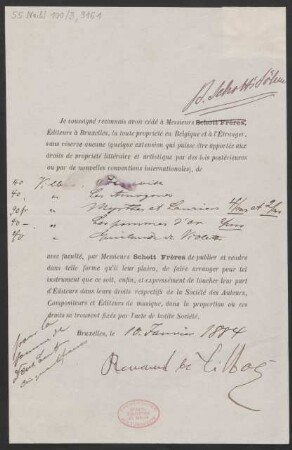 55 Nachl 100/B,
B. Schott's Söhne
Je soussigné reconnais avoir cédé à Messieurs Schott Frères,
Éditeurs à Bruxelles, la toute propriété en Belgique et à l'Étranger,
sans réserve aucune (quelque extension qui puisse être apportée aux
droits de propriété littéraire et artistique par des lois postérieures ou
par de nouvelles conventions internationales), de
40
40 "
50 fr " Myrthes et Lauriers
40 " Les pommes d'or
40 " Guirlande de Violettes
avec faculté, par Messieurs Schott Frères de publier et vendre
dans telle forme qu'il leur plaira, de faire arranger pour tel
instrument que ce soit, enfin, et expressément de toucher leur part
d'Éditeurs dans leurs droits respectifs de la Société des Auteurs,
Compositeurs et Éditeurs de musique, dans la proportion où ces
droits se trouvent fixés par l'acte de ladite Société.
Bruxelles, 10 Janvier 1884
pour la
somme de
deux cent
cinquante francs
Renaud de Vilbac